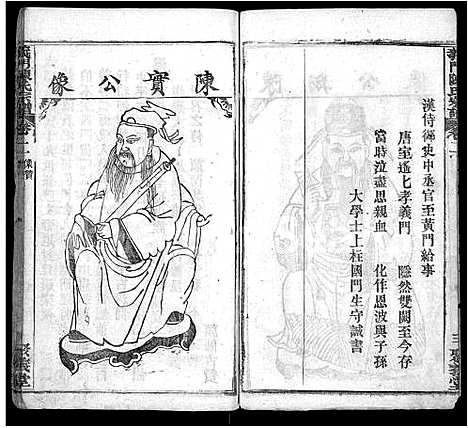 陳實公像
漢侍御史中丞官至黃門給事
唐室遙七孝義門　隱然雙闕至今存
當時泣盡思親血　化作恩波與子孫
大學士上柱國門生守誠書
義門陳氏宗譜
卷二
像贊